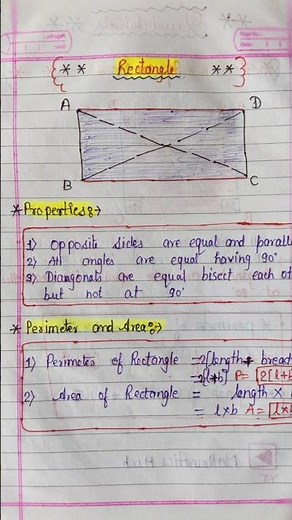 ** Rectangle **
A D
B C
* Properties:→
1) Opposite sides are equal and parall
2) All angles are equal having 90°
3) Diangonals are equal bisect each ot
but not at 90°
* Perimeter and Area:→
1) Perimeter of Rectangle = 2[length + bread
= 2[l+b] P = 2[l+b
2) Area of Rectangle = length ×
= l×b A = l×b